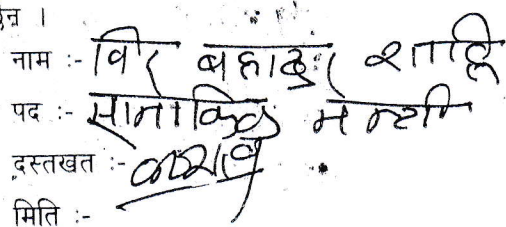 । 
नाम :- विर बहादुर शाहि
पद :- सामाजिक मन्त्री
दस्तखत :-
मिति :-